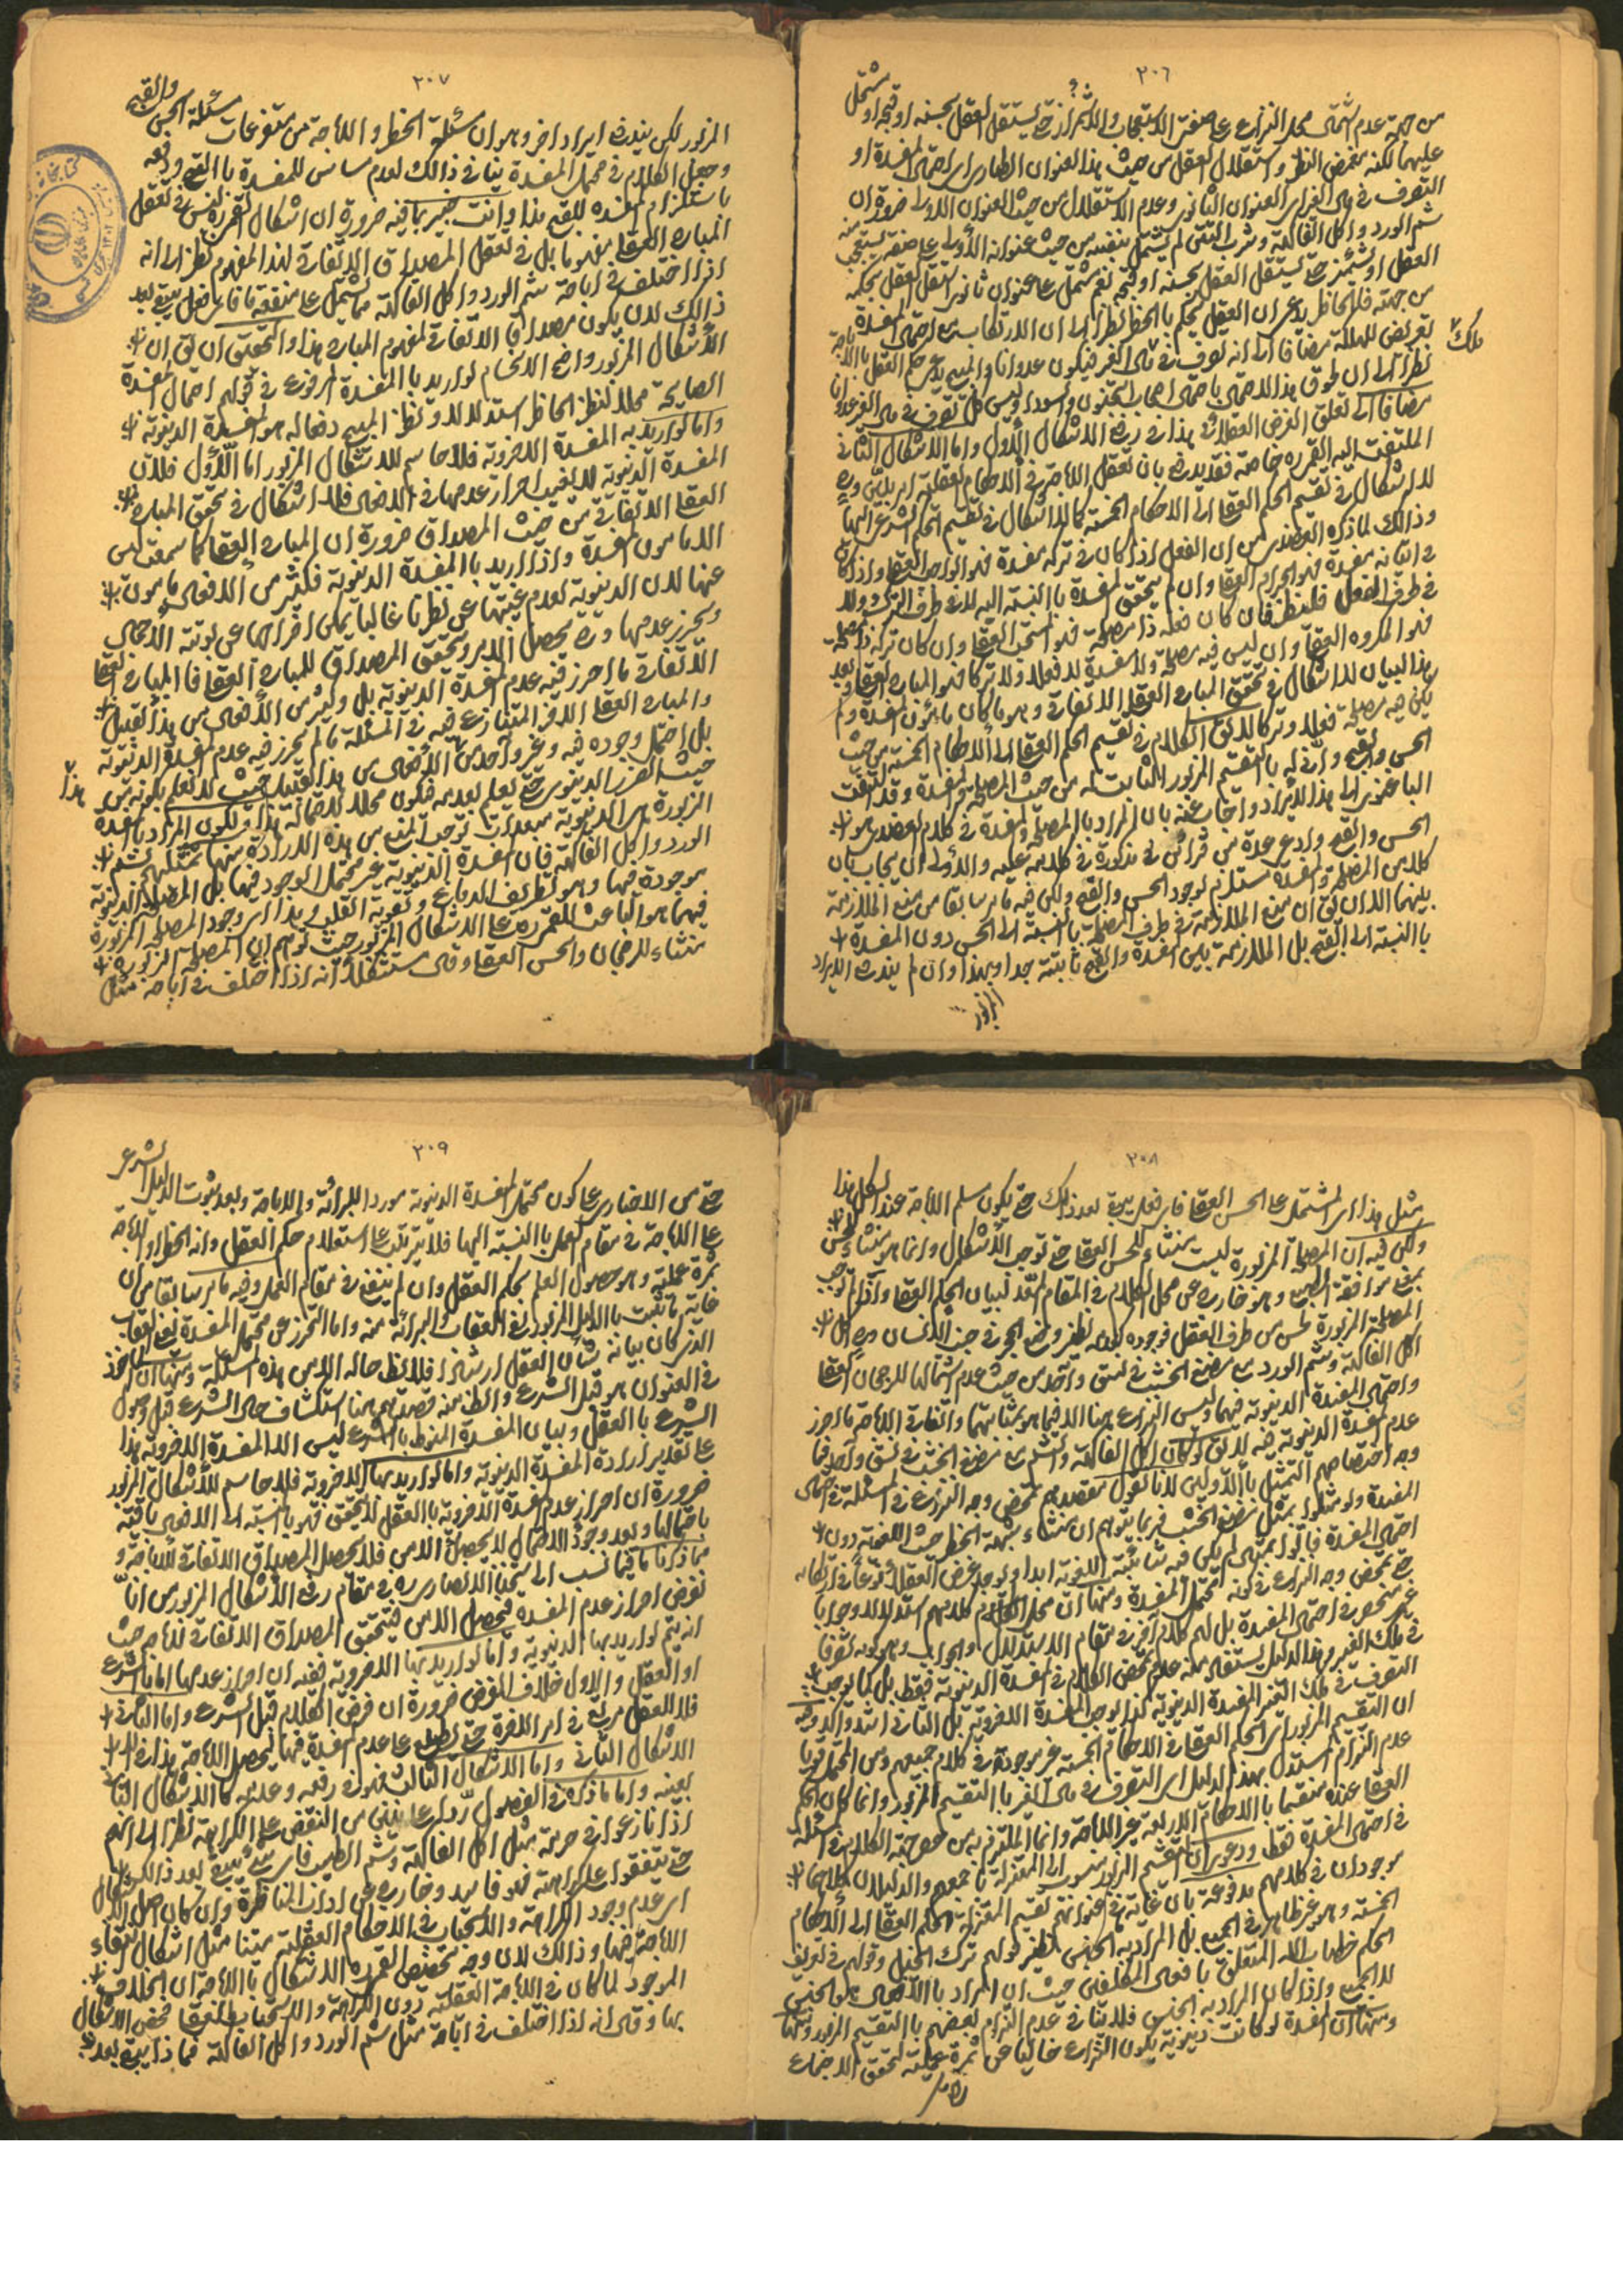 ٢٠٦
من جهة عدم اشتمال محل النزاع على صفتى الاستعجاب والاشمئزاز حتى يستقل العقل بحسنه او قبحه او يشتمل
عليهما لكنه بغمض النظر واستقلال العقل من حيث هذا العنوان الطارى اى احتمال المفسدة او
التصرف فى مال الغير اى العنوان الثانوى وعدم الاستقلال من حيث العنوان الاولى ضرورة ان
شم الورد واكل الفاكهة وشرب التتن لم يشتمل بنفسه من حيث عنوانه الأولى على صفة يستعجب منه
العقل او يشمئز حتى يستقل العقل بحسنه او قبحه نعم يشتمل على عنوان ثانوى استقل العقل بحكمه
من جهته فالحاظر يدعى ان العقل يحكم بالحظر نظرا الى ان الارتكاب مع احتمال المفسدة
تعريض للهلاكة مضافا الى انه تصرف فى مال الغير فيكون عدوانا والمبيح يدعى حكم العقل بالاباحة
ملك
نظرا الى ان طرق هذا الاحتمال
مضافا الى تعلق الغرض العقلائى هذا فى رفع الاشكال الأول واما الاشكال الثانى
الملتفت اليه القمى ره خاصة فقد يدفع بان تعقل الاباحة فى الأحكام العقلية
لا اشكال فى تقسيم الحكم العقلى الى الاحكام الخمسة كما لا اشكال فى تقسيم الحكم الشرعى اليها
وذالك لما ذكره العضدى من ان الفعل اذا كان فى تركه مفسدة فهو الواجب العقلى واذا كان
فى اتيانه مفسدة فهو الحرام العقلى وان لم يتحقق المفسدة بالنسبة اليه لا فى طرف الترك ولا
فى طرف الفعل فلينظر فان كان فعله ذا مصلحة فهو المستحب العقلى وان كان تركه ذا مصلحة
فهو المكروه العقلى وان ليس فيه مصلحة ولا مفسدة لا فعلا ولا تركا فهو المباح العقلى وبعد
هذا البيان لا اشكال فى تحقق المباح العقلى الاتفاقى وهو ما كان مأمون المفسدة ولم
يكن فيه مصلحة فعلا وتركا لا يق الكلام فى تقسيم الحكم العقلى الى الأحكام الخمسة من حيث
الحسن والقبح وأنى له بالتقسيم المزبور الثابت له من حيث المصلحة والمفسدة وقد التفت
الباغنوى الى هذا الايراد واجاب عنه بان المراد بالمصلحة والمفسدة فى كلام العضدى هو
الحسن والقبح وادعى عدة من قرائن مذكورة فى كلامه عليه والأولى ان يجاب بان
كلا من المصلحة والمفسدة مستلزم لوجود الحسن والقبح ولكن فيه ما مر سابقا من منع الملازمة
بينهما الا ان يق ان منع الملازمة فى طرف المصلحة بالنسبة الى الحسن دون المفسدة
بالنسبة الى القبح بل الملازمة بين المفسدة والقبح ثابتة جدا وبهذا وان لم يندفع الايراد
المزبور
٢٠٧
المزبور لكن يندفع ايراد اخر وهو ان مسئلة الحظر والاباحة من متفرعات مسئلة الحسن والقبح
وجعل الكلام فى محتمل المفسدة ينافى ذالك لعدم مساس للمفسدة بالقبح ودفعه
باستلزام المفسدة للقبح هذا وانت خبير بما فيه ضرورة ان اشكال القمى ره ليس فى تعقل
المباح العقلى مفهوما بل فى تعقل المصداق الاتفاقى لهذا المفهوم نظرا الى انه
اذا اختلف فى اباحة شم الورد واكل الفاكهة مما يشتمل على منفعة فاى فعل يبقى بعد
ذالك لان يكون مصداقا الاتفاقى لمفهوم المباح هذا والتحقيق ان يق ان
الأشكال المزبور واضح الاندفاع لو اريد بالمفسدة المأخوذة فى قولهم احتمال المفسدة
الصالحة محلا لنظر الحاظر استدلالا ونظر المبيح دفعا له هو المفسدة الدنيوية
واما لو اريد به المفسدة الاخروية فلا حاسم للاشكال المزبور اما الأول فلان
المفسدة الدنيوية احراز عدمها فى الافعال فلا اشكال فى تحقق المباح
العقلى الاتفاقى من حيث المصداق ضرورة ان المباح العقلى كما سمعت ليس
الا مأمون المفسدة واذا اريد بالمفسدة الدنيوية فكثير من الافعال مأمون
عنها لان الدنيوية لعدم غيبتها عن نظرنا غالبا يمكن
ويحرز عدمها وح يحصل الامر ويتحقق المصداق للمباح العقلى فالمباح العقلى
الاتفاقى ما احرز فيه عدم المفسدة الدنيوية بل وكثير من الأفعال من هذا القبيل
والمباح العقلى الاخر المتنازع فيه فى المسئلة ما لم يحرز فيه عدم المفسدة الدنيوية
بل احتمل وجوده فيه وغير واحد من الأفعال من هذا القبيل حيث لا نعلم بكونه من
هذا
حيث الضرر الدنيوى حتى نعلم بعدمه فيكون محلا للاحتمالة هذا ولكون المراد بالمفسدة
المزبورة هى الدنيوية مبعدات توجب المنع من هذه الارادة منها تمثيلهم بشم
الورد واكل الفاكهة فان المفسدة الدنيوية غير محتمل الوجود فيها بل المصلحة الدنيوية
موجودة فيها وهو تطريف الدماغ وتقوية القلب وهذا اى وجود المصلحة المزبورة
فيهما هو الباعث للقمى ره على الاشكال المزبور حيث توهم ان المصلحة المزبورة
منشاء للرجحان والحسن العقلى وقال مستشكلا انه اذا اختلف فى اباحة مثل
٢٠٨
مثل هذا اى المشتمل على الحسن العقلى فاى فعل يبقى بعد ذلك حتى يكون مسلم الاباحة عند الكل هذا
ولكن فيه ان المصلحة المزبورة ليست منشاء للحسن العقلى حتى توجب الأشكال وانما هو منشاء
بمعنى موافقة الطبع وهو خارج عن محل الكلام فى المقام المعد لبيان الحكم العقلى واذا لم توجب
المصلحة المزبورة لحسن من طرف العقل فوجوده كعدمه نظير وضع الحجر فى جنب الانسان وح اكل
اكل الفاكهة وشم الورد مع مضغ الخشب فى نسق واحد من حيث عدم اشتمالها للرجحان العقلى
واحتمال المفسدة الدنيوية فيهما وليس النزاع هنا الا فيما هو بمثابتهما واتفاقى الاباحة ما احرز
عدم المفسدة الدنيوية فيه لا يق لو كان اكل الفاكهة والشم مع مضغ الخشب فى نسق واحد فما
وجه اختصاصهم التمثيل بالأولين لانا نقول مقصدهم تمحض وجه النزاع فى المسئلة فى احتمال
المفسدة ولو مثلوا بمثل مضغ الخشب فربما يتوهم ان منشاء شبهة الحظر حيث اللغوية دون
احتمال المفسدة فأتوا بمثال لم يكن فيه شائبة اللغوية ابدا ويوجد غرض العقلاء نوعا فى ارتكابه
حتى تمحض وجه النزاع فى كونه محتمل المفسدة ومنها ان محل الكلام كلامهم استدلالا وجوابا
غير منحصر فى احتمال المفسدة بل لهم كلام آخر فى مقام الاستدلال والجواب وهو كونه تصرفا
فى ملك الغير وهذا الدليل يستفاد منه عدم تمحض الكلام فى المفسدة الدنيوية فقط بل كما يوجب
التصرف فى ملك الغير المفسدة الدنيوية كذا يوجب المفسدة الاخروية بل الثانى اشد واكد وفيه
ان التقسيم المزبور اى الحكم العقلى الى الاحكام الخمسة غير موجودة فى كلام جميعهم ومن المحتمل قويا
عدم التزام المستدل بهذا الدليل اى التصرف فى مال الغير بالتقسيم المزبور وانما كان الحكم
العقلى عنده منقسما بالاحكام الاربعة غير الاباحة وانما الملتزم به من خص جهة الكلام فى المسئلة
فى احتمال المفسدة فقط ودعوى ان التقسيم المزبور منسوب الى المعتزلة بأجمعهم والدليلان كلاهما
موجودان فى كلامهم مدفوعة بان غاية ما فى عنوانهم تقسيم المعتزلة الحكم العقلى الى الأحكام
الخمسة وهو غير ظاهر فى الجميع بل المراد به الجنس نظير قولهم ترك الخيل وقولهم فى تعريف
الحكم خطاب الله المتعلق بافعال المكلفين حيث ان المراد بالافعال هو الجنس
لا الجميع واذا كان المراد به الجنس فلا ينافى عدم التزام بعضهم بالتقسيم المزبور ومنها
ومنها ان المفسدة لو كانت دنيوية يكون النزاع خاليا عن ثمرة عملية لتحقق الاجماع
٢٠٩
حتى من الاخبارى على كون محتمل المفسدة الدنيوية موردا للبرائة والاباحة وبعد ثبوت الدليل الشرعى
على الاباحة فى مقام العمل بالنسبة اليها فلا يترتب على استعلام حكم العقل وانه الحظر او الاباحة
ثمرة عملية وهو حصول العلم بحكم العقل وان لم ينفع فى مقام العمل وفيه ما مر سابقا من ان
غاية ما يثبت بالدليل المزبور رفع العقاب والبرائة منه واما التحرز عن محتمل المفسدة نفع العقاب
الذى كان بيانه شأن العقل ارشادا فلا بظ حاله الا من هذه المسئلة ومنها ان الماخوذ
فى العنوان هو قبل الشرع والظ منه قصدهم هنا استكشاف حال الشرع قبل وصول
الشرع بالعقل وبيان المفسدة المنوط بالشرع ليس الا المفسدة الاخروية هذا
على تقدير ارادة المفسدة الدنيوية واما لو اريد بها الاخروية فلا حاسم للأشكال المزبور
ضرورة ان احراز عدم المفسدة الاخروية بالعقل لا يتحقق فهو بالنسبة الى الافعال باقية
باحتمالها وبعد وجود الاحتمال لا يحصل الامن فلا يحصل المصداق الاتفاقى للأباحة و
مما ذكرنا ما فيما نسب الى شيخنا الانصارى ره فى مقام رفع الأشكال المزبور من انا
نفرض احراز عدم المفسدة فيحصل الامن فيتحقق المصداق الاتفاقى للاباحة حيث
انه يتم لو اريد بها الدنيوية واما لو اريد بها الاخروية ففيه ان احراز عدمها اما بالشرع
او العقل والاول خلاف المفروض ضرورة ان فرض الكلام قبل الشرع واما الثانى
فلا للعقل مسرح فى امر الاخرة حتى يطلع على عدم المفسدة فيها ليحصل الاباحة هذا فى
الاشكال الثانى واما الاشكال الثالث فهو فى رفعه وعدمه كالاشكال الثانى
بعينه واما ما ذكره فى الفصول ردا على من النقض على الكراهة نظرا الى انهم
اذا نازعوا فى حرمة مثل اكل الفاكهة وشم الطيب فاى شئ يبقى بعد ذالك
حتى يتفقوا على كراهته فهو فاسد وخارج عن اداب المناظرة وان كان اصل الاشكال
اى عدم وجود الكراهة والاستحباب فى الاحكام العقلية متينا مثل اشكال انتفاء
الاباحة فيها وذالك لان وجه تخصيص القمى ره الاشكال بالاباحة ان الخلاف
الموجود لما كان فى الاباحة العقلية دون الكراهة والاستحباب العقلى فخص الاشكال
بها وقال انه اذا اختلف فى اباحة مثل شم الورد واكل الفاكهة فماذا يبقى بعد